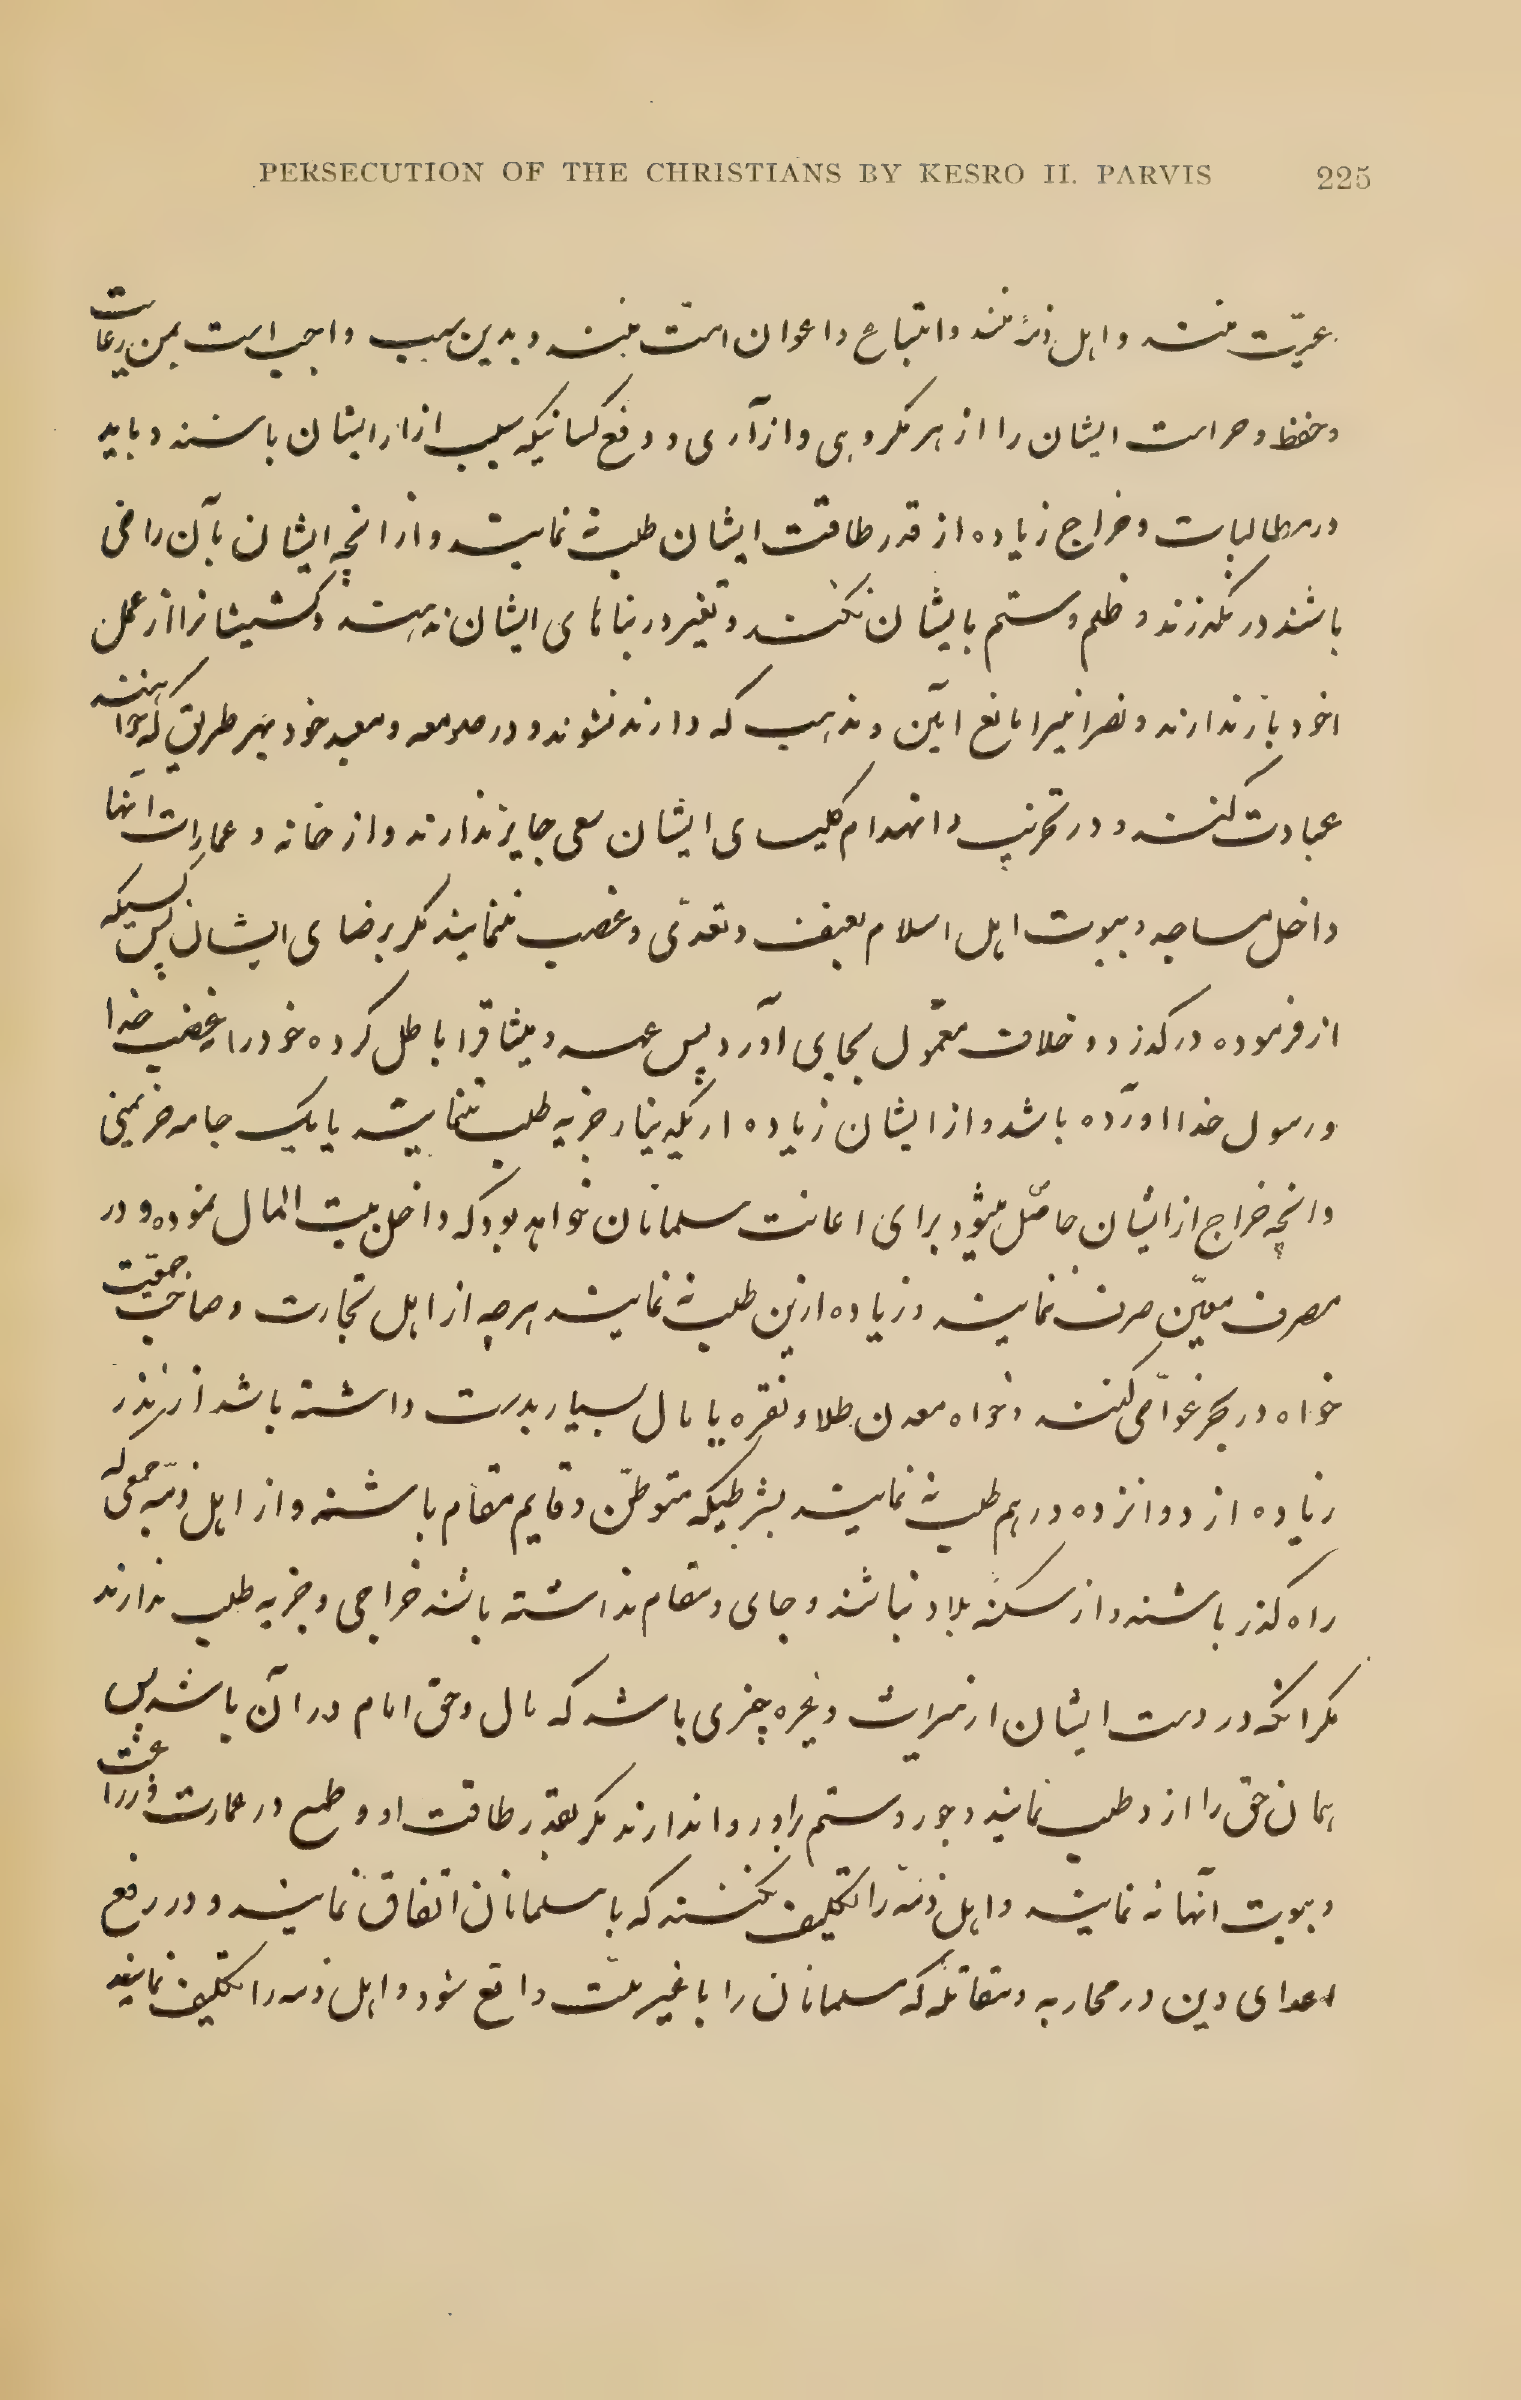 PERSECUTION OF THE CHRISTIANS BY KESRO II. PARVIS 225
رعیّت منند و اهل ذمّهٔ منند و اتباع و اعوان امّت منند و بدین سبب واجب است بمن رعایت
و حفظ و حراست ایشان را از هر مکروهی و از آری و دفع کسانیکه سبب ازار ایشان باشند و باید
در مطالبات و خراج زیاده از قدر طاقت ایشان طلب نه نمایند و از انچه ایشان بآن راضی
باشند در نگذرند و ظلم و ستم بایشان نکنند و تغیر در بناهای ایشان نه دهند و کشیشانرا از عمل
خود باز ندارند و نصرانیرا مانع آیین و مذهب که دارند نشوند و در صومعه و معبد خود بهر طریق که خواهند
عبادت کنند و در تخریب و انهدام کلیسای ایشان سعی جایز ندارند و از خانه و عمارات آنها
داخل مساجد و بیوت اهل اسلام بعنف و تعدّی و غصب ننمایند مکر برضای ایشان پس کسیکه
از فرموده در کذرد و خلاف معمول بجای آورد پس عهد و میثاقرا باطل کرده خود را بغضب خدا
و رسول خدا اورده باشد و از ایشان زیاده از یکدینار جزیه طلب ننمایند یا یک جامه خز یمنی
و انچه خراج از ایشان حاصل میشود برای اعانت مسلمانان خواهد بود که داخل بیت المال نموده و در
مصرف معیّن صرف نمایند و زیاده ازین طلب نه نمایند هر چه از اهل تجارت و صاحب جمعیّت
خواه در بحر غوّاصی کنند و خواه معدن طلا و نقره یا مال بسیار بدست داشته باشد از نذر
زیاده از دوانزده درهم طلب نه نمایند بشرطیکه متوطّن و قایم مقام باشند و از اهل ذمّه جمعی که
راه کذر باشند و از سکنهٔ بلاد نباشند و جای و مقام نداشته باشند خراجی و جزیه طلب ندارند
مکر انکه در دست ایشان از میراث و غیره چیزی باشد که مال و حق امام در آن باشد پس
همان حق را از و طلب نمایند و جور و ستم را و روا ندارند مکر بقدر طاقت او و طمع در عمارت و زراعت
و بیوت آنها نه نمایند و اهل ذمّه را تکلیف نکنند که با مسلمانان اتفاق نمایند و در رفع
اعدای دین در محاربه و مقاتله که مسلمانان را با غیر ملّت واقع شود و اهل ذمه را تکلیف نمایند